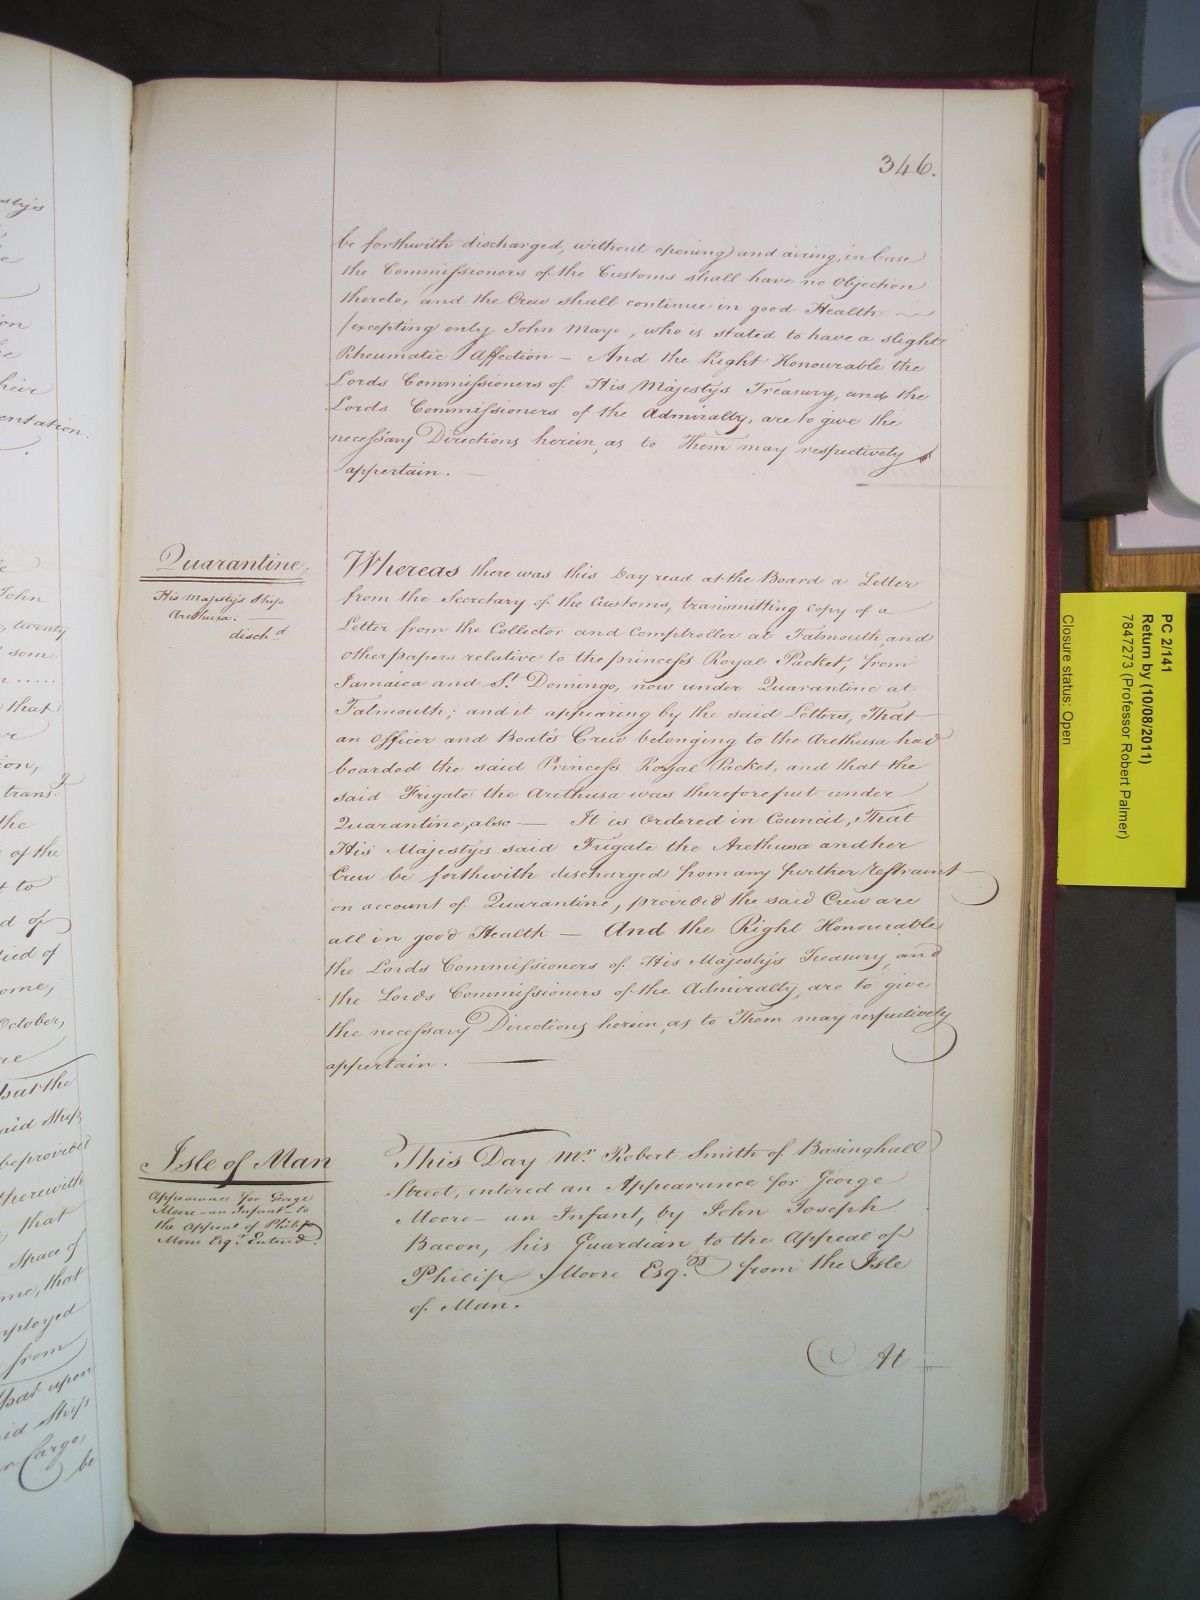 346.
be forthwith discharged, without opening and airing, in Case
the Commissioners of the Customs shall have no Objection
thereto, and the Crew shall continue in good Health
/excepting only John Maye, who is stated to have a slight
Rheumatic Affection — And the Right Honourable the
Lords Commissioners of His Majesty's Treasury, and the
Lords Commissioners of the Admiralty, are to give the
necessary Directions herein, as to Them may respectively
appertain. —
Quarantine,
His Majesty's Ship
Arethusa. —
disch.d
Whereas there was this Day read at the Board a Letter
from the Secretary of the Customs, transmitting copy of a
Letter from the Collector and Comptroller at Falmouth, and
other papers relative to the princess Royal Packet, from
Jamaica and St. Domingo, now under Quarantine at
Falmouth; and it appearing by the said Letters, That
an Officer and Boat's Crew belonging to the Arethusa had
boarded the said Princess Royal Packet, and that the
said Frigate the Arethusa was therefore put under
Quarantine, also — It is Ordered in Council, That
His Majesty's said Frigate the Arethusa and her
Crew be forthwith discharged from any further Restraint
on account of Quarantine, provided the said Crew are
all in good Health — And the Right Honourable
the Lords Commissioners of His Majesty's Treasury, and
the Lords Commissioners of the Admiralty, are to give
the necessary Directions herein, as to Them may respectively
appertain. —
Isle of Man
Appearance for George
Moore — an Infant — to
the Appeal of Philip
Moore Esq.r Entered.
This Day Mr. Robert Smith of Basinghall
Street, entered an Appearance for George
Moore — an Infant, by John Joseph
Bacon, his Guardian to the Appeal of
Philip Moore Esq.r from the Isle
of Man.
At
PC 2/141
Return by (10/08/2011)
7847273 (Professor Robert Palmer)
Closure status: Open